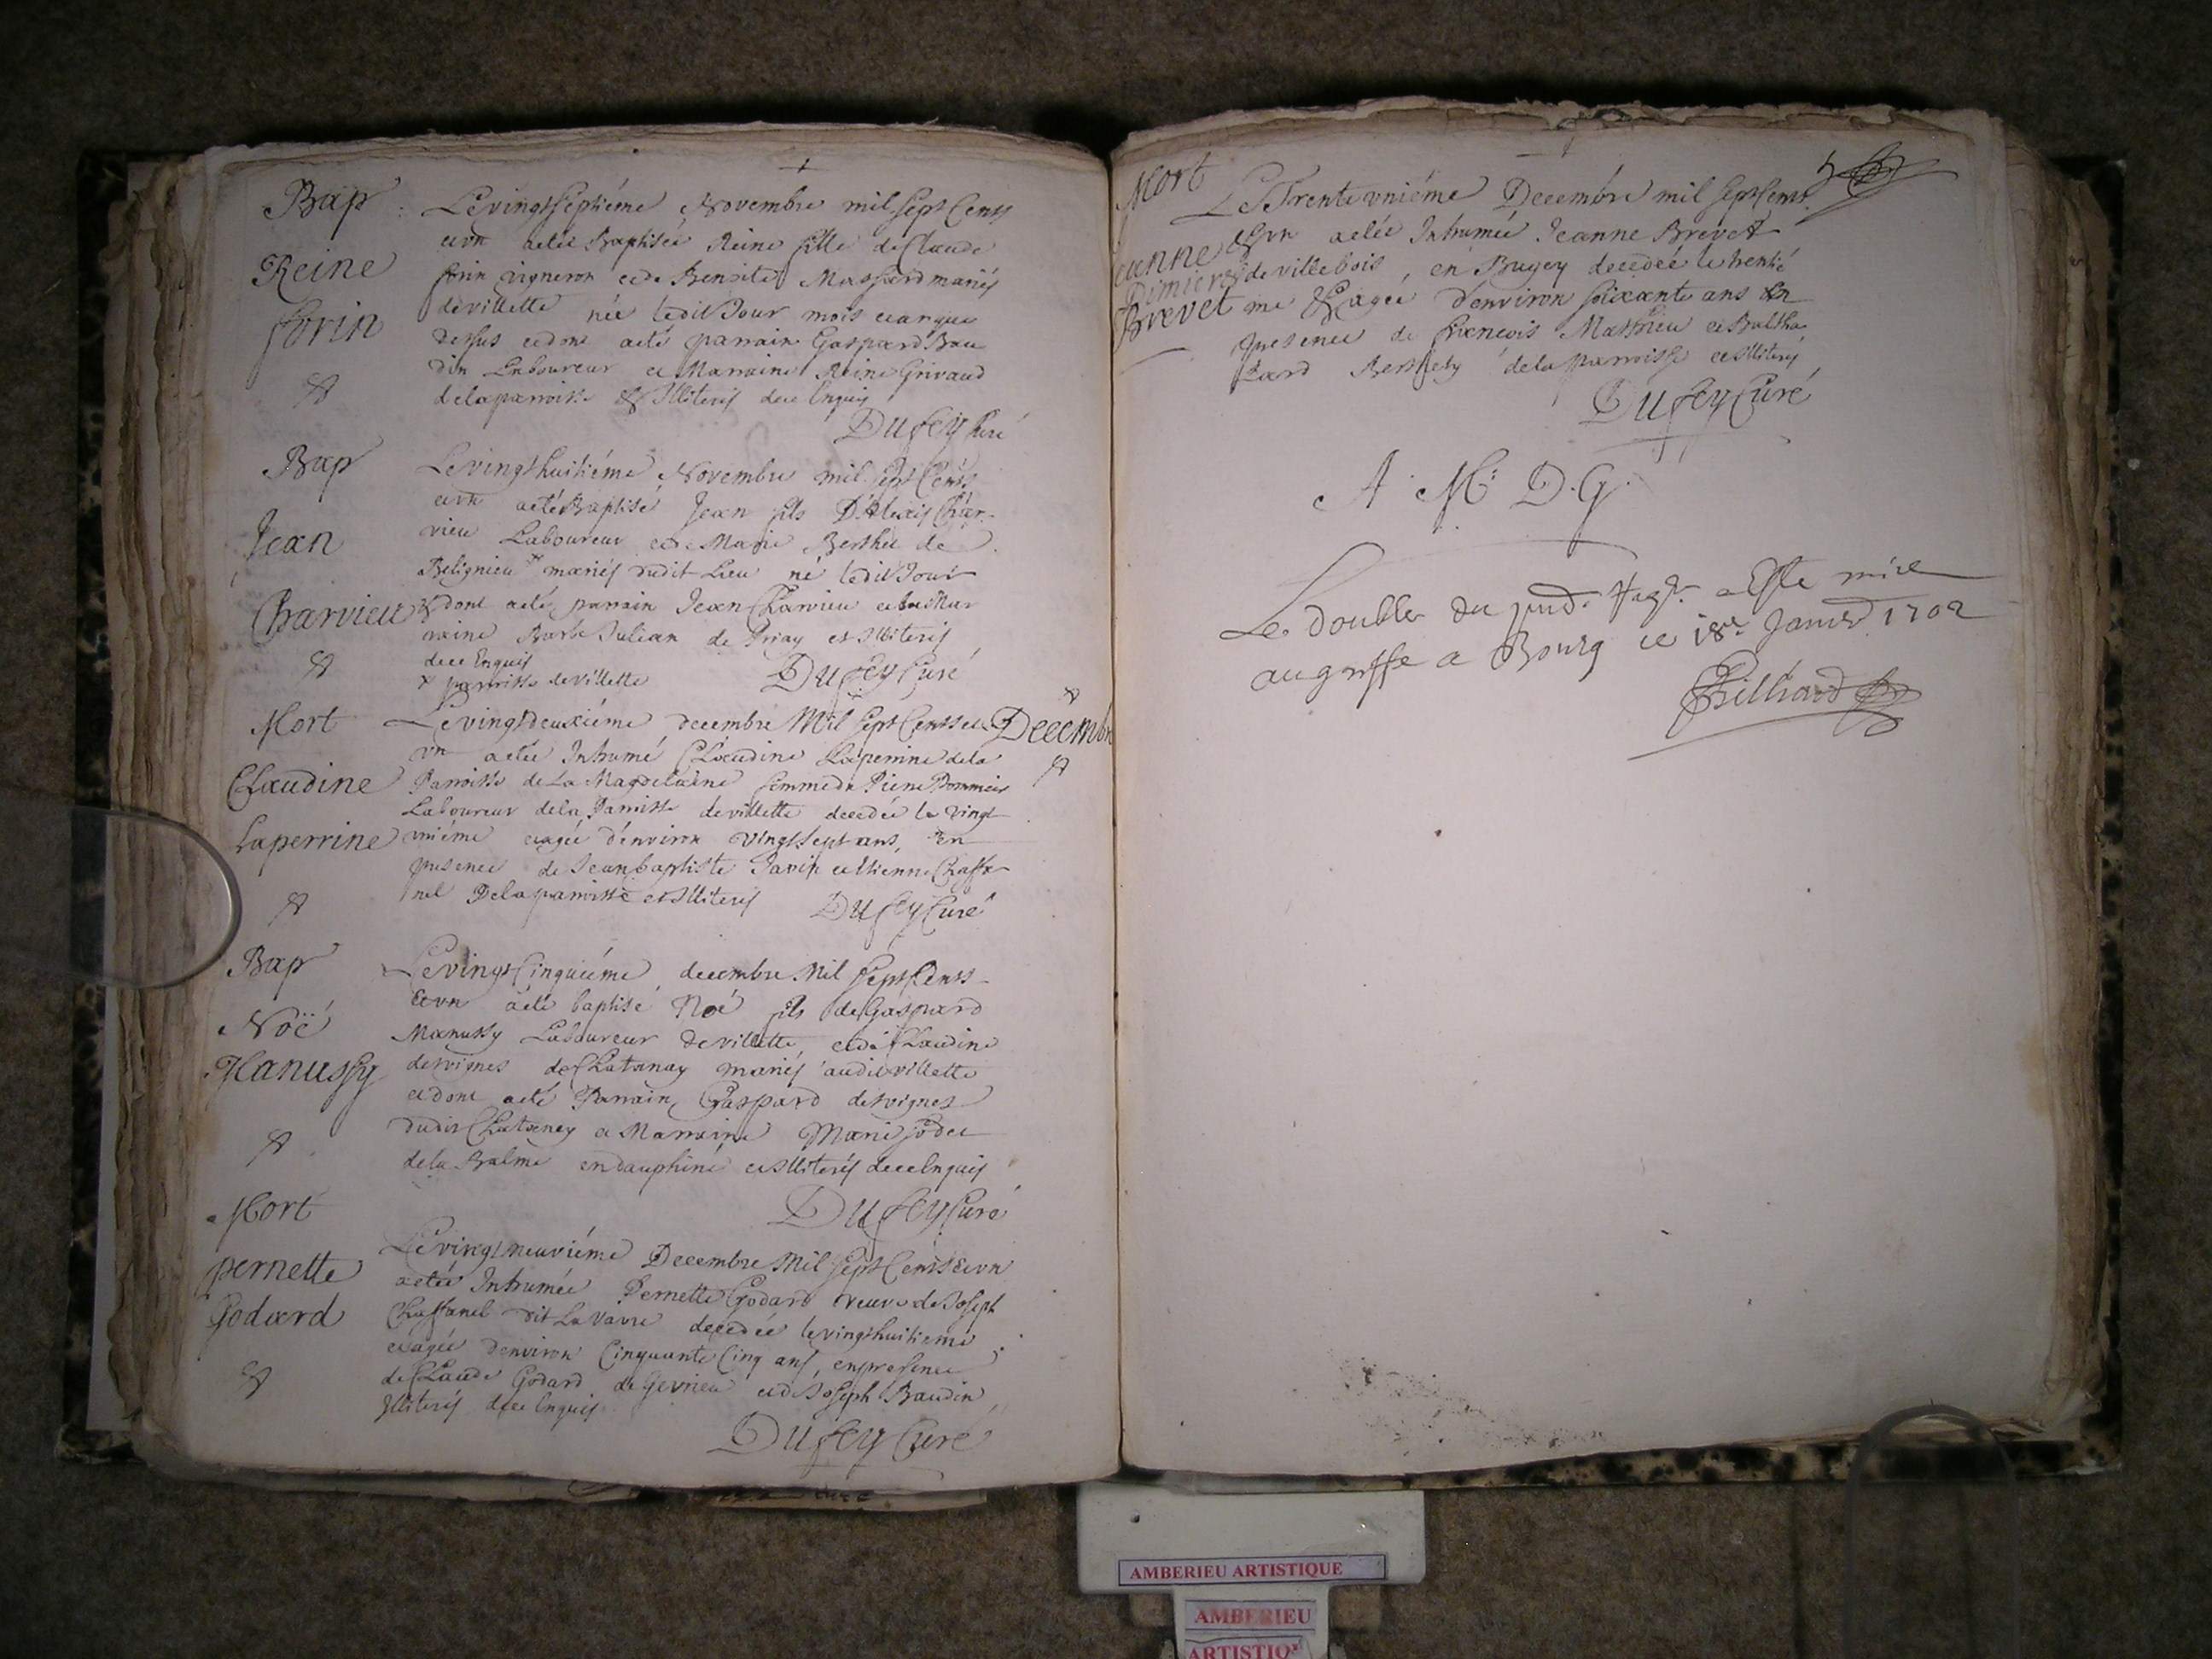 Bap
Reine
forin
Le vingtseptiéme Novembre mil sept Cents
et vn a eté Baptisée Reine fille de Claude
forin vigneron et de Benoite Massard mariés
de villette née ledit Jour mois et an que
dessus et dont a eté parrain Gaspard Bau
din Laboureur et Marraine Reine Grivaud
de la parroisse & Illiterés de ce Enquis
Dufey Curé
Bap
Jean
Charvieu
Le vingthuitiéme Novembre mil sept Cents
et vn a eté Baptisé Jean fils D'Alexis Char-
vieu Laboureur et de Marie Berthet de
Belignieu x mariés dudit Lieu né ledit Jour
& dont a eté parrain Jean Charvieu et la Mar
raine Julian de Priay et Illiterés
de ce Enquis
x parroisse de villette
Dufey Curé
Decembre
Mort
Claudine
Laperrine
Le vingtdeuxiéme decembre Mil Sept Cents et
vn a etée Inhumé Claudine Laperrine de la
Parroisse de La Magdelaine femme de Pierre
Laboureur de la Parroisse de villette decedée le vingt
vniéme et agée d'environ vingt sept ans, En
presence de Jean baptiste et Etienne Chaffa
nel De la parroisse et Illiterés
Dufey Curé
Bap
Noë
Manussy
Le vingt Cinquiéme decembre Mil Sept Cents
et vn a eté baptisé Noé fils de Gaspard
Manussy Laboureur de villette et de Claudine
desvignes de Chatanay mariés audit villette
et dont a eté Parrain Gaspard desvignes
dudit Chatanay et Marraine Marie
de la Balme en dauphiné et Illiterés de ce Enquis
Dufey Curé
Mort
pernette
Godard
Le vingt neuviéme Decembre Mil Sept Cents et vn
a etée Inhumée Pernette Godard veuve de Joseph
Chaffanel dit La decedée le vingthuitieme
et agée d'environ Cinquante Cinq ans, en presence
de Claude Godard de Gevrieu et de Joseph Baudin
Illiterés de ce Enquis
Dufey Curé
Mort
Jeanne
Brevet
Le Trente vniéme Decembre mil Sept Cents
& vn a etée Inhumée Jeanne Brevet
de villebois, en Bugey decedée le trentié
me & agée d'environ soixante ans En
presence de francois Mathieu et Baltha
zard de la parroisse et Illiterés
Dufey Curé
A. M. D. G.
Le double du a Esté mise
au greffe a Bourg ce 18e Janvier 1702
Billiard
AMBERIEU ARTISTIQUE
AMBERIEU
ARTISTIQ